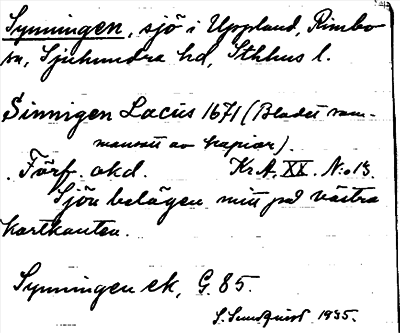 Synningen, sjö i Uppland, Rimbo
sn, Sjuhundra hd, Sthlms l.
Sinnigen Lacus 1671 (Bladet sam-
mansatt av kopior).
Förf. okd. Kr.A. XX. N:o 13.
Sjön belägen mitt på västra
kartkanten.
Synningen ek, G. 85.
S. Sundquist 1935.